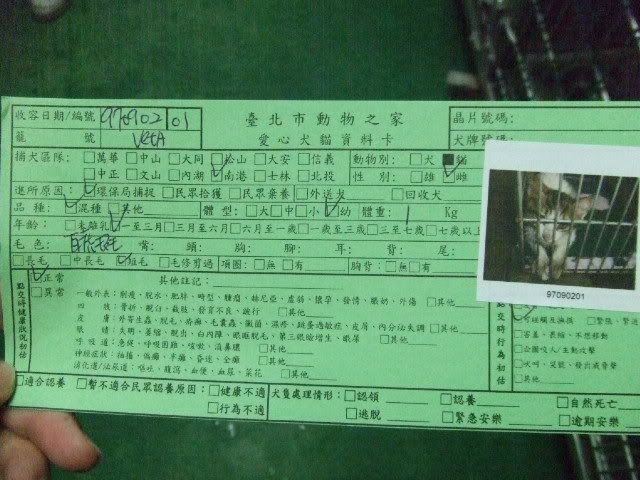 收容日期/編號 970902 01 臺北市動物之家 晶片號碼:
籠 號 愛心犬貓資料卡 犬牌號碼:
捕犬區隊: □萬華 □中山 □大同 □松山 □大安 □信義 動物別: □犬 ■貓
□中正 □文山 □內湖 ☑南港 □士林 □北投 性 別: □雄 ☑雌
進所原因: ☑環保局捕捉 □民眾拾獲 □民眾棄養 □外送戈 □回收犬
品種: ☑混種 □其他 體型: □大 □中 □小 ☑幼 體重: 1 Kg
年齡: □未離乳 ☑一至三月 □三月至六月 □六月至一歲 □一歲至三歲 □三至七歲 □七歲以上
毛色: 嘴: 頭: 胸: 腳: 耳: 背: 尾:
□長毛 □中長毛 ☑短毛 □毛修剪過 項圈: □無 □有 胸背: □無 □有
97090201
點交時健康狀況初估
☑正常 其他註記:
□異常
一般外表: 削瘦、脫水、肥胖、畸型、腫瘤、赫尼亞、虛弱、懷孕、發情、脹奶、外傷 □其他
四 肢: 骨折、跛行 □其他
皮 膚: 外寄生蟲、脫毛、疥癬、毛囊蟲、黴菌、濕疹、跳蚤過敏症、皮屑、內分泌失調 □其他
眼 睛: 失明、萎縮、脫出、白內障、眼瞼脫毛、第三眼瞼增生、眼屎 □其他
呼吸道: 急促、呼吸困難、咳嗽、流鼻膿 □其他
神經症狀: 抽搐、偏癱、半癱、昏迷、全癱 □其他
消化道/泌尿道: 嘔吐、腹瀉、血便、血尿、菜花 □其他
點交時行為初估
☑可碰觸及撫摸 □緊張、緊迫
□害羞、畏縮、不想移動
□企圖咬人、主動攻擊
□犬吠、哭號、發出威脅聲
□其他
□適合認養 □暫不適合民眾認養原因: □健康不適 犬隻處理情形: □認領 □認養 □自然死亡
□行為不適 □逃脫 □緊急安樂 □逾期安樂